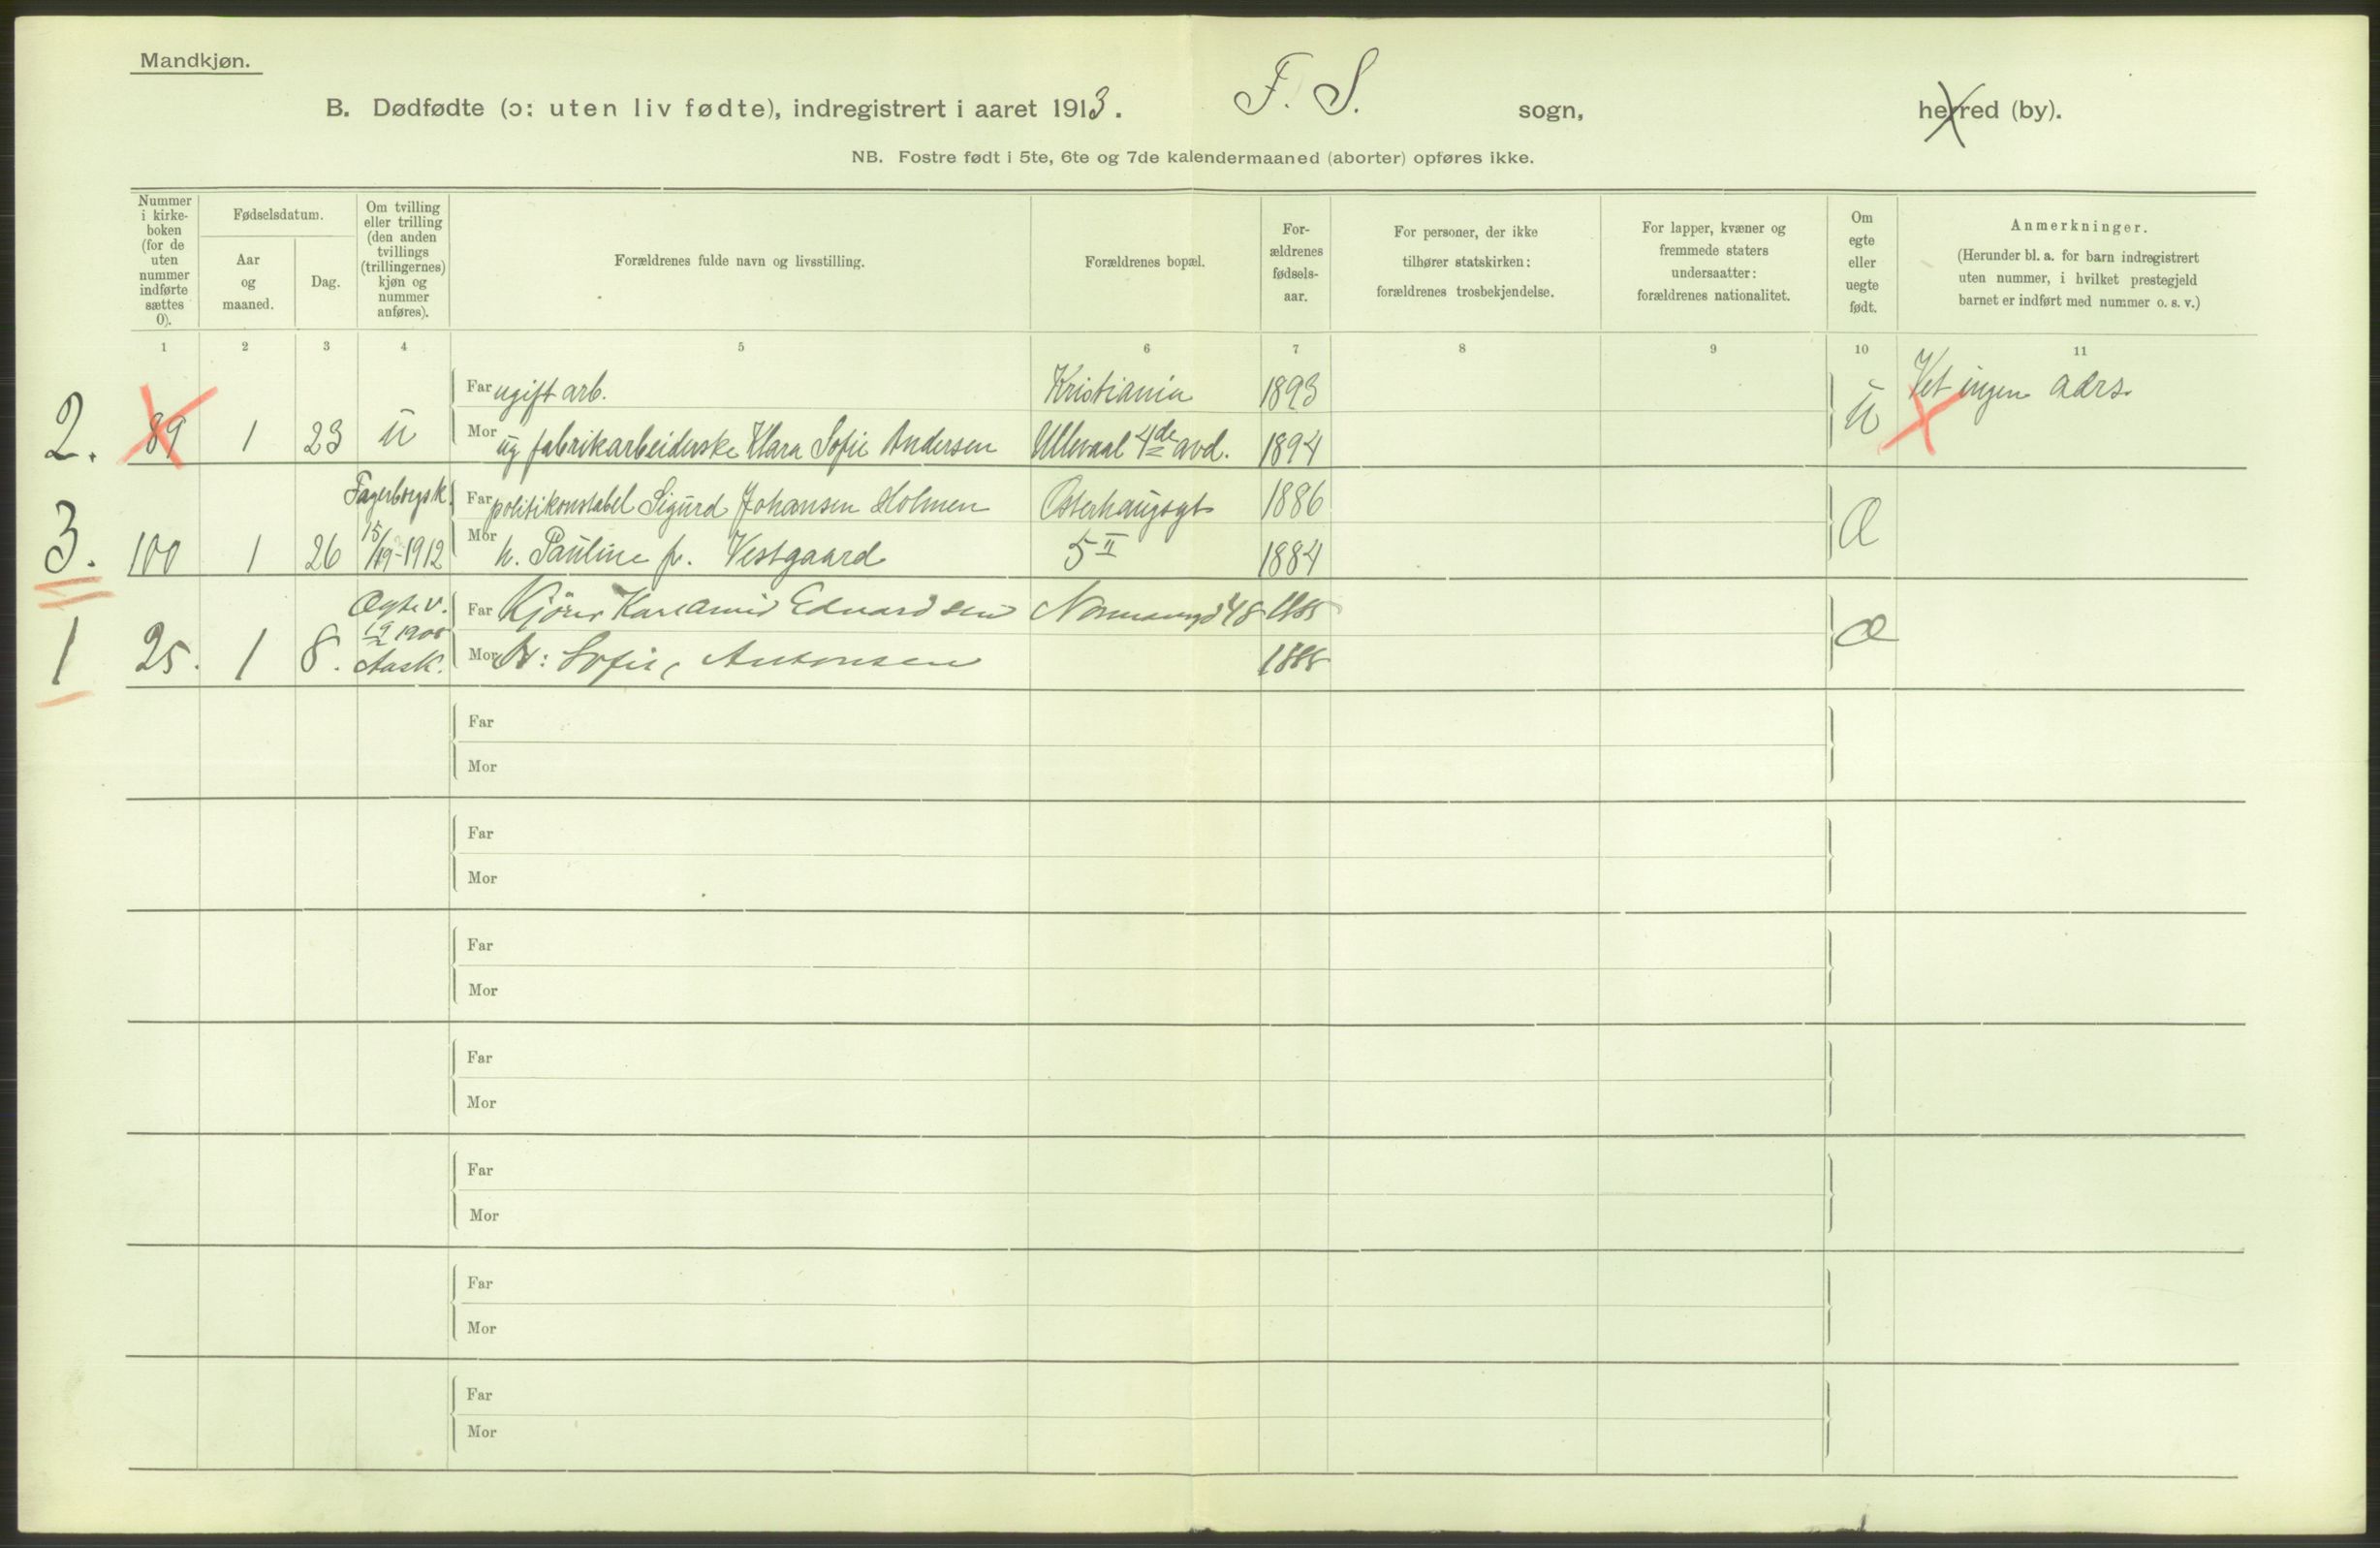 Mandkjøn.
B. Dødfødte (ɔ: uten liv fødte), indregistrert i aaret 1913. F. S. sogn, herred (by).
NB. Fostre født i 5te, 6te og 7de kalendermaaned (aborter) opføres ikke.
Nummer i kirke-boken (for de uten nummer indførte sættes 0).
Fødselsdatum.
Aar og maaned.
Dag.
Om tvilling eller trilling (den anden tvillings (trillingernes) kjøn og nummer anføres).
Forældrenes fulde navn og livsstilling.
Forældrenes bopæl.
For-ældrenes fødsels-aar.
For personer, der ikke tilhører statskirken: forældrenes trosbekjendelse.
For lapper, kvæner og fremmede staters undersaatter: forældrenes nationalitet.
Om egte eller uegte født.
Anmerkninger.
(Herunder bl. a. for barn indregistrert uten nummer, i hvilket prestegjeld barnet er indført med nummer o. s. v.)
1 2 3 4 5 6 7 8 9 10 11
Far ugift arb. Kristiania 1893 Vet ingen adrs.
2. 89 1 23 u Mor ug fabrikarbeiderske Klara Sofie Andersen Ullevaal 4de avd. 1894 u
Fagerborgsk. Far politikonstabel Sigurd Johansen Holmen Osterhaugsgt 1886
3. 100 1 26 15/19-1912 Mor h. Pauline f. Vestgaard 5 II 1884 Æ
Ægtev. Far Kjører Karl Edvardsen 48 1885
1 25. 1 8. 1908 Aask. Mor H: Sofie, Antonsen 1888 Æ
Far
Mor
Far
Mor
Far
Mor
Far
Mor
Far
Mor
Far
Mor
Far
Mor